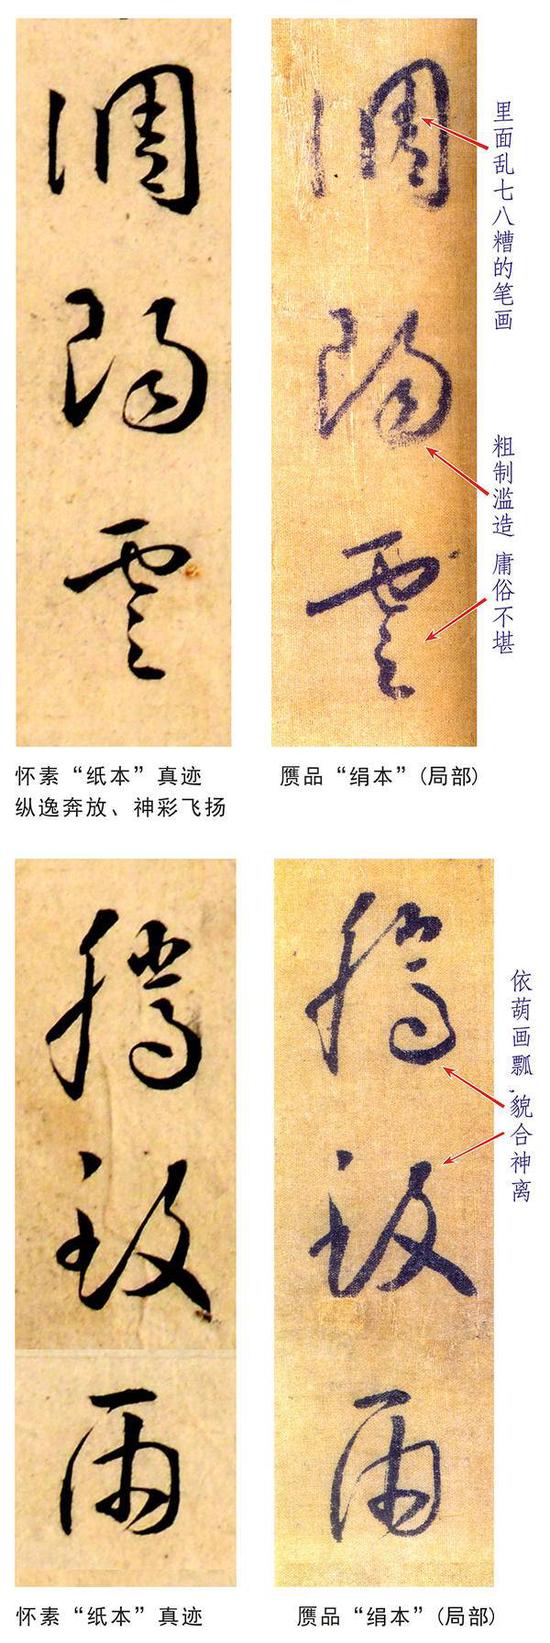 調陽雲
調陽雲
里面乱七八糟的笔画
粗制滥造 庸俗不堪
怀素“纸本”真迹
纵逸奔放、神彩飞扬
赝品“绢本”(局部)
騰致雨
騰致雨
依葫画瓢,貌合神离
怀素“纸本”真迹
赝品“绢本”(局部)